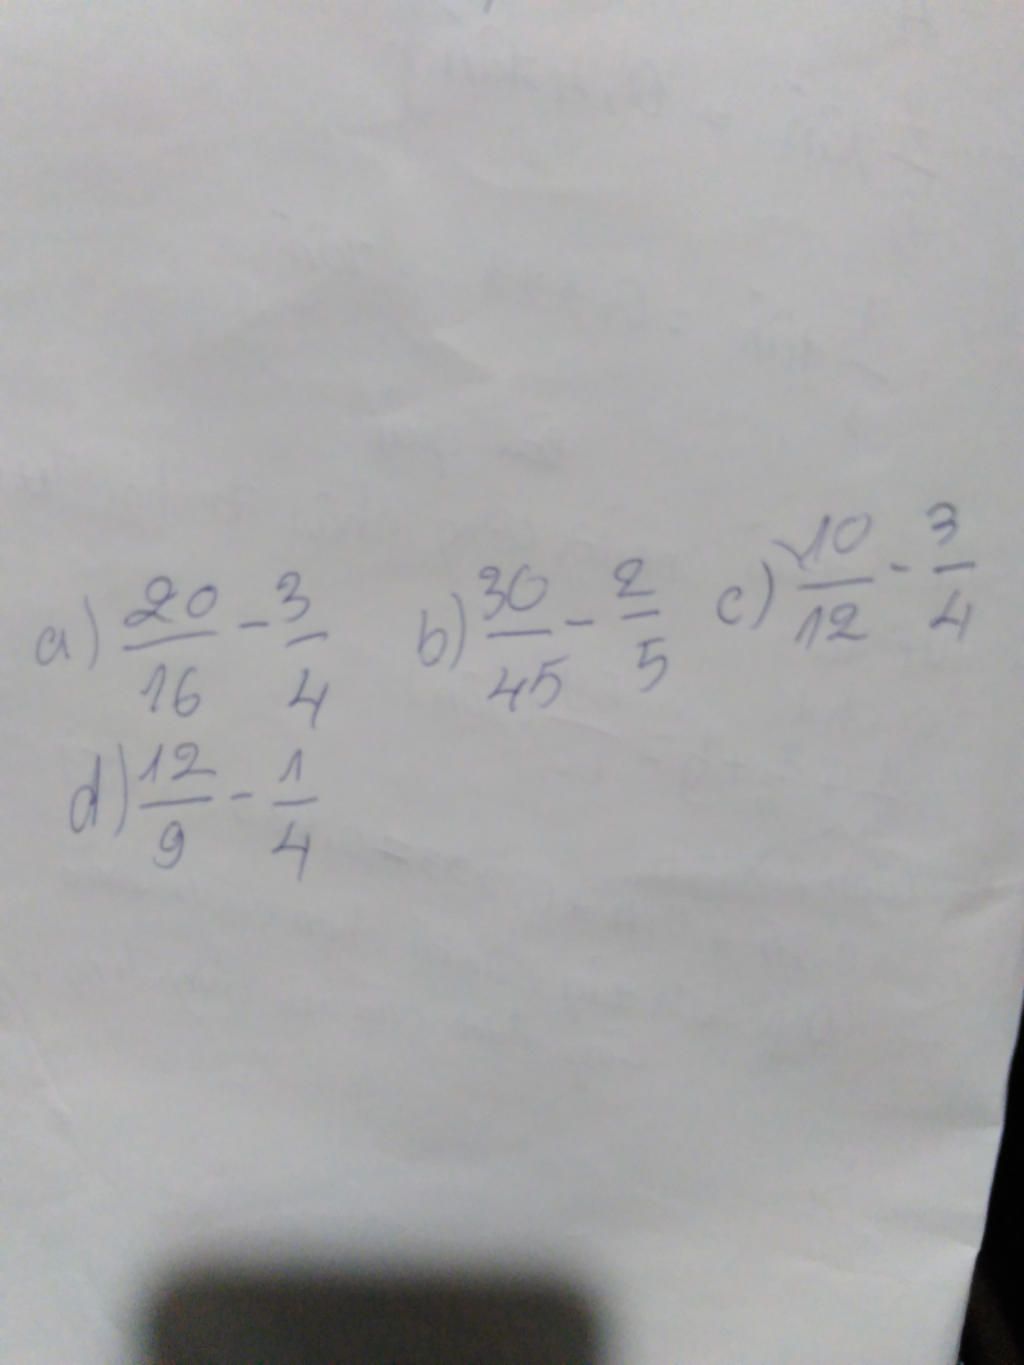 a) 20/16 - 3/4 b) 30/45 - 2/5 c) 10/12 - 3/4
d) 12/9 - 1/4